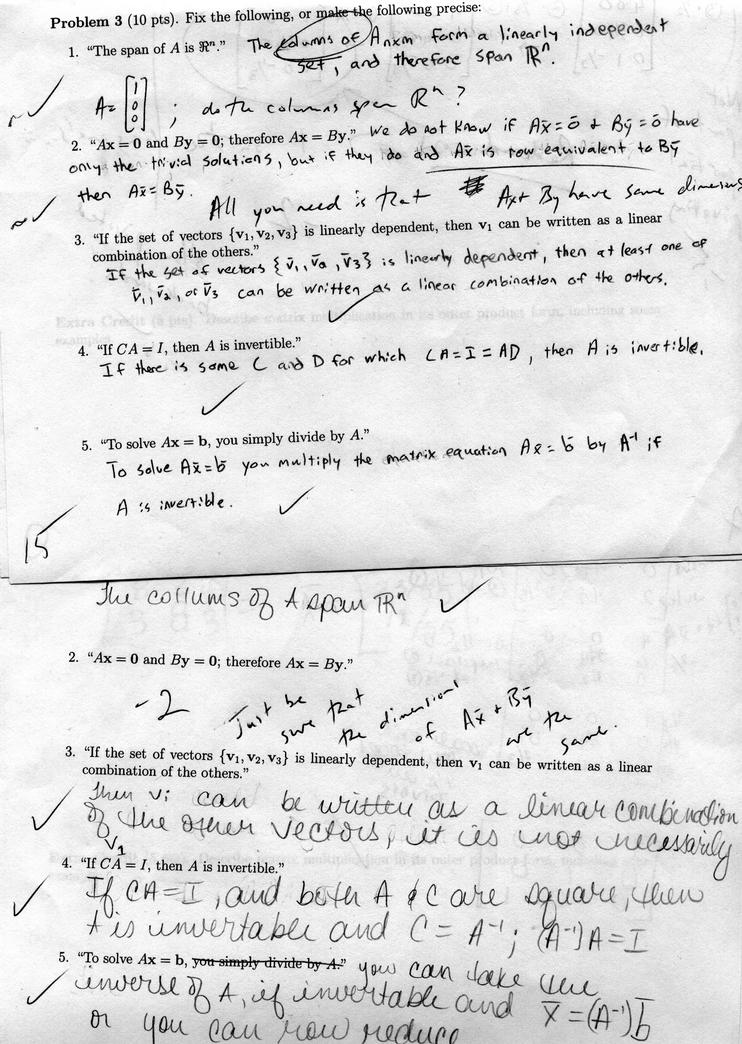 Problem 3 (10 pts). Fix the following, or make the following precise:
1. "The span of A is ℜⁿ." The columns of Anxm form a linearly independent
set, and therefore span ℝⁿ.
A= [1 0 0 0] ; do the columns span ℝⁿ?
2. "Ax = 0 and By = 0; therefore Ax = By." We do not know if Ax̄=ō & Bȳ=ō have
only the trivial solutions, but if they do and Ax̄ is row equivalent to Bȳ
then Ax̄=Bȳ.
All you need is that Ax+By have same dimensions
3. "If the set of vectors {v₁, v₂, v₃} is linearly dependent, then v₁ can be written as a linear
combination of the others."
If the set of vectors {v̄₁, v̄₂, v̄₃} is linearly dependent, then at least one of
v̄₁, v̄₂, or v̄₃ can be written as a linear combination of the others.
4. "If CA = I, then A is invertible."
If there is some C and D for which CA=I=AD, then A is invertible.
5. "To solve Ax = b, you simply divide by A."
To solve Ax̄=b̄ you multiply the matrix equation Ax̄=b̄ by A⁻¹ if
A is invertible.
15
The collums of A span ℝⁿ
2. "Ax = 0 and By = 0; therefore Ax = By."
-2 Just be sure that the dimensions of Ax̄ + Bȳ are the same.
3. "If the set of vectors {v₁, v₂, v₃} is linearly dependent, then v₁ can be written as a linear
combination of the others."
Then vᵢ can be written as a linear combination
of the other vectors, it is not necessarily
v₁
4. "If CA = I, then A is invertible."
If CA=I, and both A & C are square, then
A is invertable and C = A⁻¹; (A⁻¹)A=I
5. "To solve Ax = b, you simply divide by A." you can take the
inverse of A, if invertable and x̄=(A⁻¹)b̄
or you can row reduce